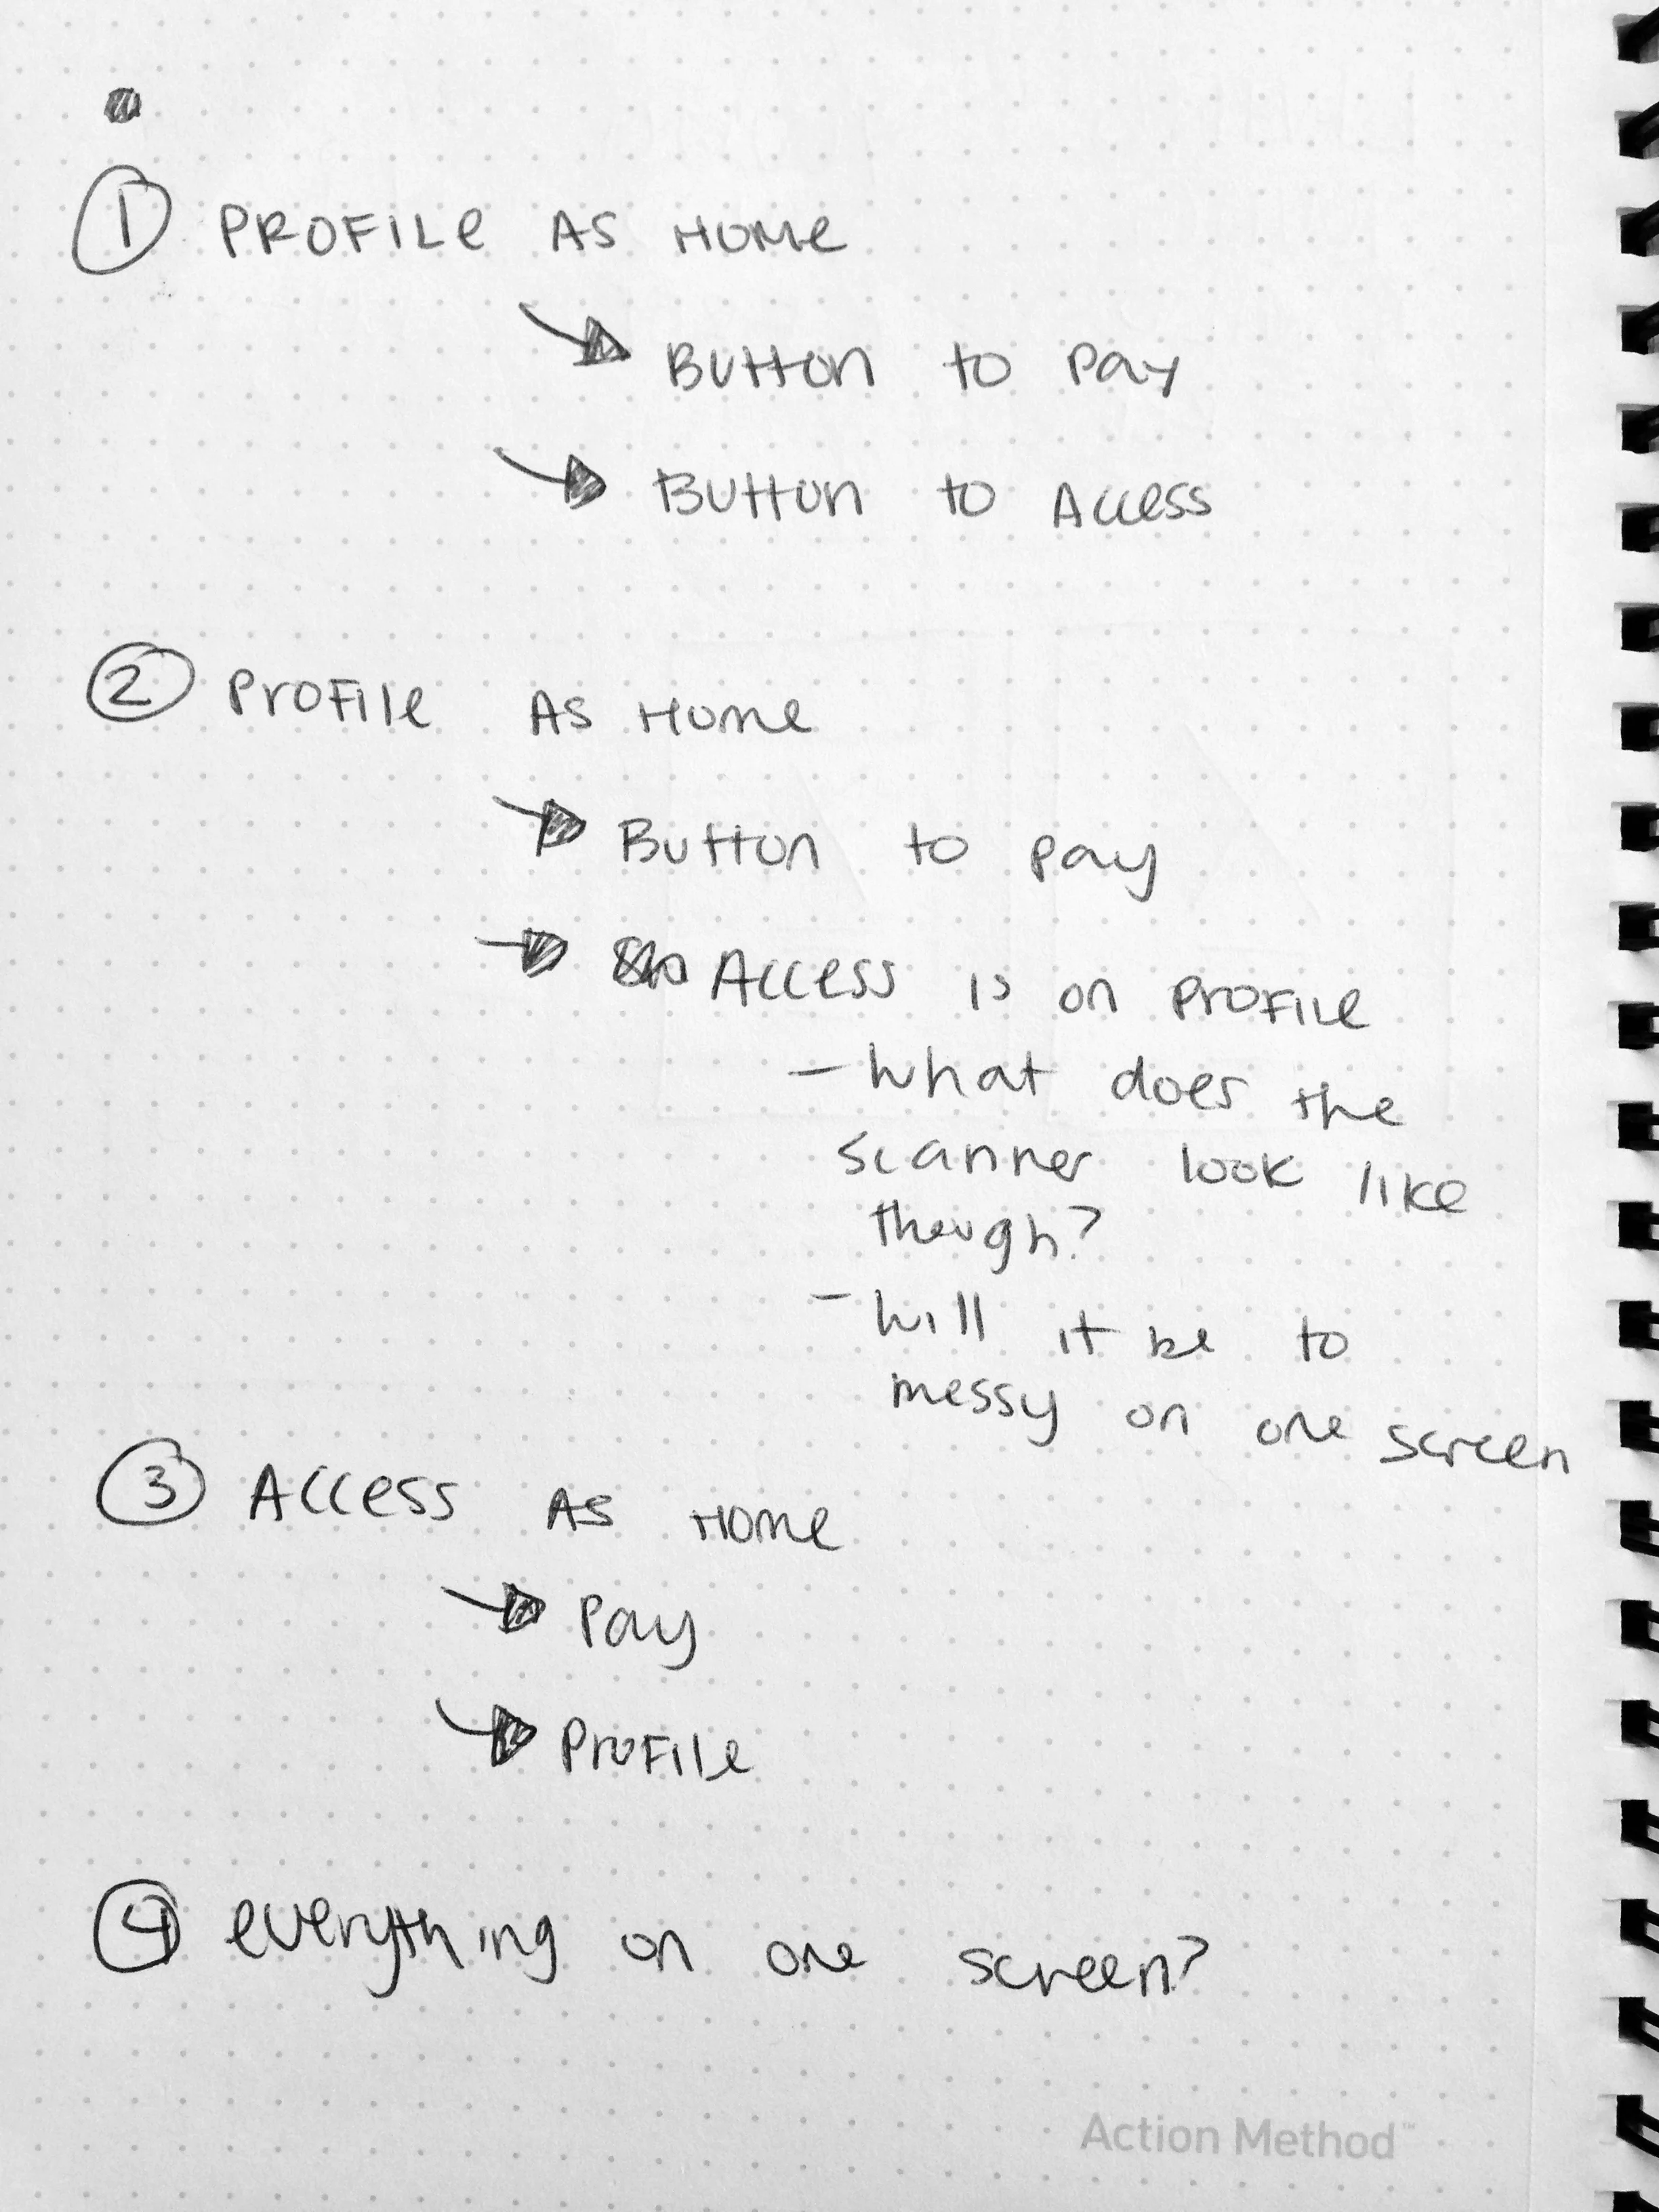 1 PROFILE AS HOME
Button to pay
Button to Access
2 Profile AS Home
Button to pay
Access is on profile
- What does the
scanner look like
though?
- Will it be to
messy on one screen
3 Access AS Home
Pay
Profile
4 everything on one screen?
Action Method™